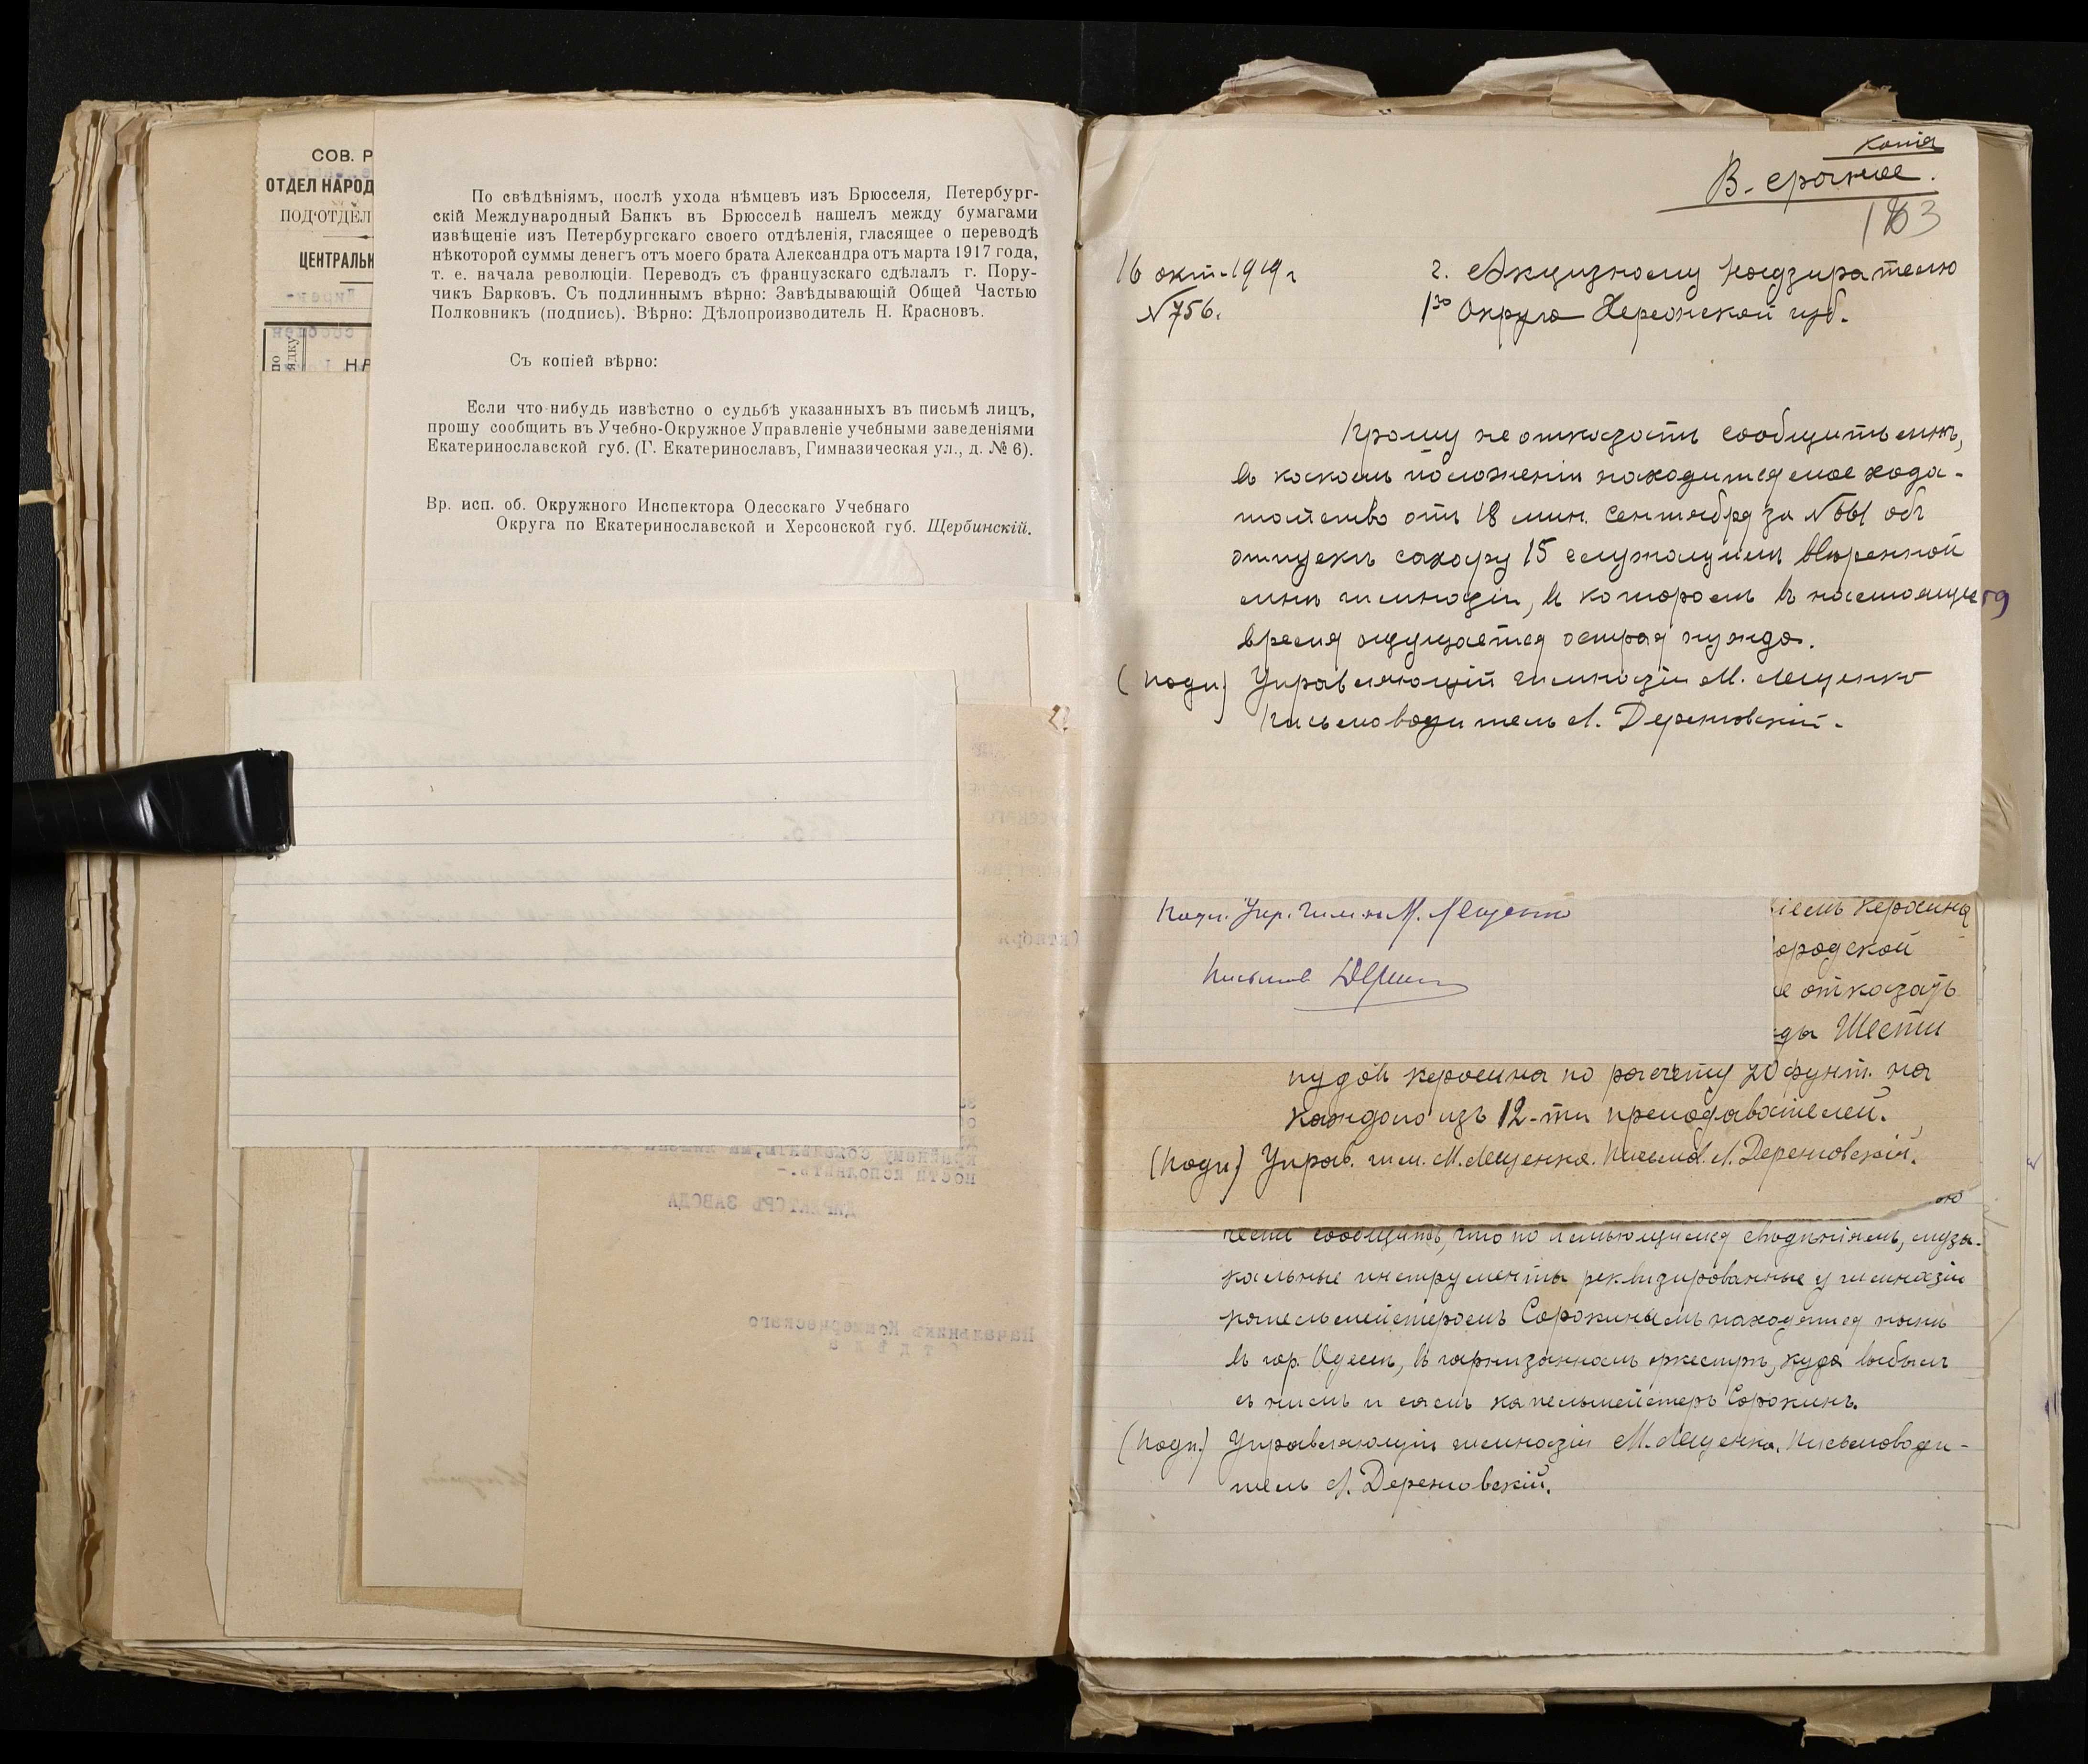 СОВ. Р
ОТДЕЛ НАРОД
ПОД'ОТДѢЛ
ЦЕНТРАЛЬН
ПО
РЯДКУ
НА
По свѣдѣніямъ, послѣ ухода нѣмцевъ изъ Брюсселя, Петербург-
скій Международный Банкъ въ Брюсселѣ нашелъ между бумагами
извѣщеніе изъ Петербургскаго своего отдѣленія, гласящее о переводѣ
нѣкоторой суммы денегъ отъ моего брата Александра отъ марта 1917 года,
т. е. начала революціи. Переводъ съ французскаго сдѣлалъ г. Пору-
чикъ Барковъ. Съ подлиннымъ вѣрно: Завѣдывающій Общей Частью
Полковникъ (подпись). Вѣрно: Дѣлопроизводитель Н. Красновъ.
Съ копіей вѣрно:
Если что-нибудь извѣстно о судьбѣ указанныхъ въ письмѣ лицъ,
прошу сообщить въ Учебно-Окружное Управленіе учебными заведеніями
Екатеринославской губ. (Г. Екатеринославъ, Гимназическая ул., д. № 6).
Вр. исп. об. Окружного Инспектора Одесскаго Учебнаго
Округа по Екатеринославской и Херсонской губ. Щербинскій.
копія
В. срочное.
183
16 окт. 1919 г
№ 756.
г. Акцизному Надзирателю
1го Округа Херсонской губ.
Прошу не отказать сообщить мнѣ,
въ какомъ положеніи находится мое хода-
тайство отъ 18 мин. сентября за № 661 объ
отпускѣ сахару 15 служащимъ ввѣренной
мнѣ гимназіи, въ которомъ въ настоящее
время ощущается острая нужда.
(подп) Управляющій гимназіи М. Лещенко
Письмоводитель Л. Дерений.
Подп. Упр. гимн. М. Лещенко
Письмов
іемъ керосина
ородской
е отказать
ды Шести
пудовъ керосина по расчету 20 фунт. на
каждого изъ 12-ти преподавателей.
(подп) Управ. гим. М. Лещенко. Письмов. Л.
ою
чести сообщить, что по имѣющимся свѣдѣніямъ, музы-
кальные инструменты реквизированные у гимназіи
капельмейстеромъ Сорокинымъ находятся нынѣ
въ гор. Одессѣ, въ гарнизонномъ оркестрѣ, куда выбылъ
съ ними и самъ капельмейстеръ Сорокинъ.
(подп.) Управляющій гимназіи М. Лещенко. Письмоводи-
тель Л.